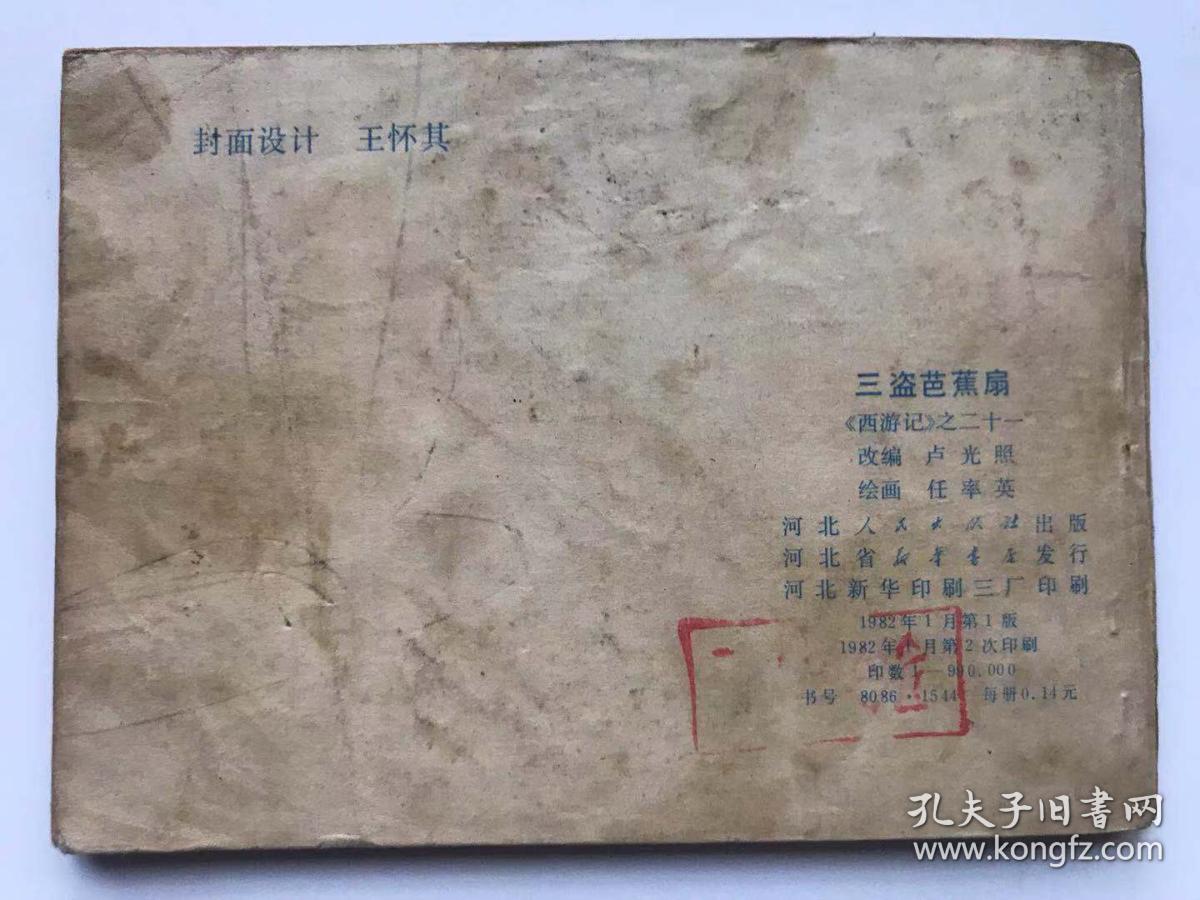 封面设计 王怀其
三盗芭蕉扇
《西游记》之二十一
改编 卢光照
绘画 任率英
河北人民出版社出版
河北省新华书店发行
河北新华印刷三厂印刷
1982年1月第1版
1982年1月第2次印刷
印数1—990.000
书号 8086·1544 每册0.14元
孔夫子旧書网
www.kongfz.com